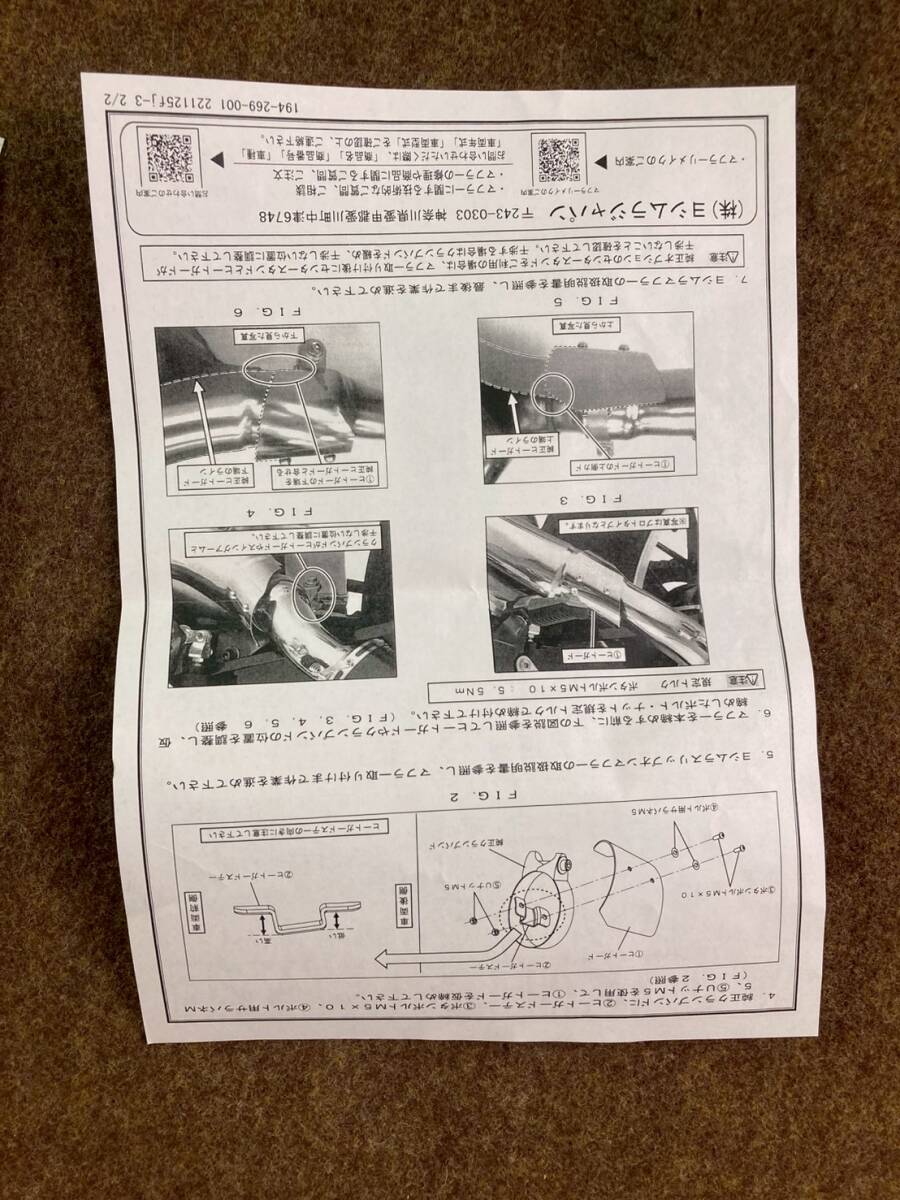 ４．純正クランプバンドに、②ヒートガードステー、③ボタンボルトM５×１０、④ボルト用サラバネM
５、⑤UナットM５を使用して、①ヒートガードを仮締めして下さい。
（ＦＩＧ．２参照）
①ヒートガード
②ヒートガードステー
③ボタンボルトM５×１０
④ボルト用サラバネM５
⑤UナットM５
純正クランプバンド
車両後側
車両前側
低い
高い
②ヒートガードステー
ヒートガードステーの向きに注意して下さい
ＦＩＧ．２
５．ヨシムラスリップオンマフラーの取扱説明書を参照し、マフラー取り付けまで作業を進めて下さい。
６．マフラーを本締めする前に、下の図説を参照してヒートガードやクランプバンドの位置を調整し、仮
締めしたボルト・ナットを規定トルクで締め付けて下さい。（ＦＩＧ．３、４、５、６ 参照）
⚠注意 規定トルク ボタンボルトM５×１０ ： ５．５Nm
①ヒートガード
※写真はプロトタイプとなります。
ＦＩＧ．３
クランプバンドがヒートガードやスイングアームと
干渉しない位置に調整して下さい。
ＦＩＧ．４
①ヒートガードの上側カド
純正ヒートガード
上端のライン
上から見た写真
ＦＩＧ．５
①ヒートガードの下端を
純正ヒートガードと合せる
純正ヒートガード
下端のライン
下から見た写真
ＦＩＧ．６
７．ヨシムラマフラーの取扱説明書を参照し、最後まで作業を進めて下さい。
⚠注意 純正オプションのセンタースタンドをご利用の場合は、マフラー取り付け後にセンタースタンドとヒートガードが
干渉しないことを確認して下さい。干渉する場合はクランプバンドを緩め、干渉しない位置に調整して下さい。
（株）ヨシムラジャパン 〒243-0303 神奈川県愛甲郡愛川町中津6748
・マフラーリメイクのご案内 ▶
マフラーリメイクのご案内
・マフラーに関する技術的なご質問、ご相談
・マフラーの修理や商品に関するご質問、ご注文
お問い合わせいただく際は、「商品名」「商品番号」「車種」
「車両年式」「車両型式」をご確認の上、ご連絡下さい。
▶
お問い合わせのご案内
194-269-001 221125fj-3 2/2